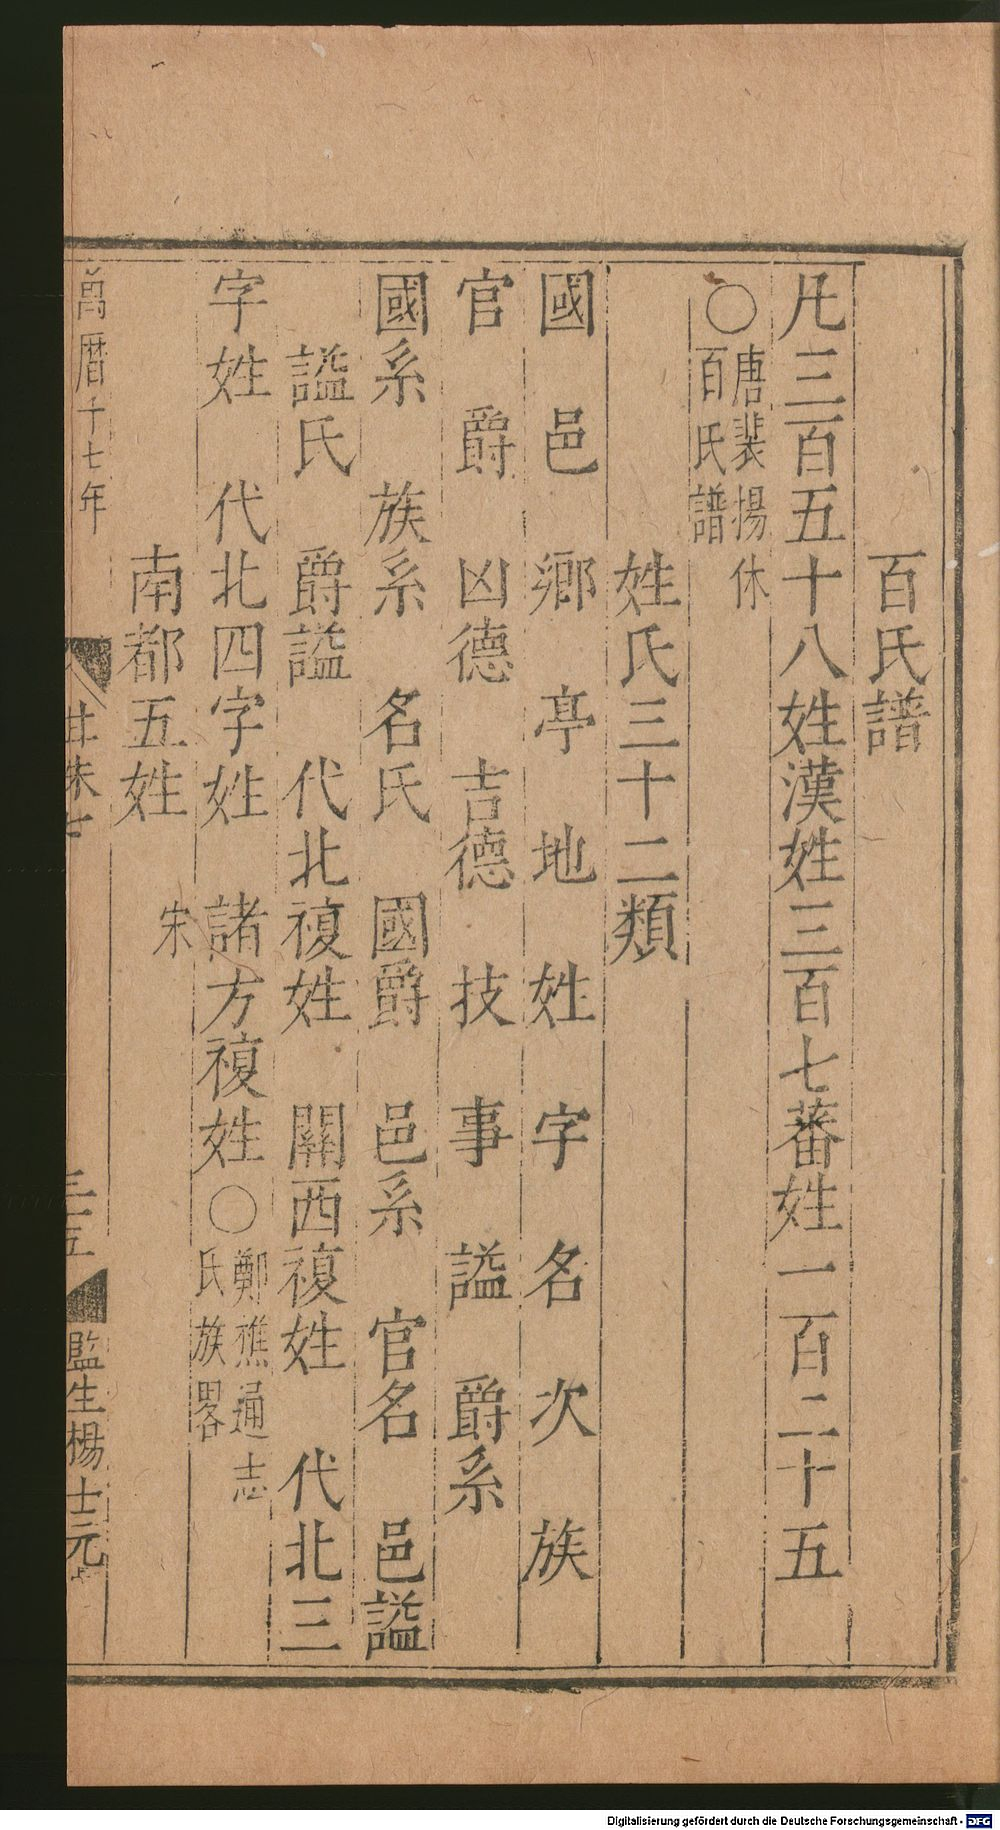 百氏譜
凡三百五十八姓漢姓三百七蕃姓一百二十五
○唐裴揚休
百氏譜
姓氏三十二類
國 邑 鄉 亭 地 姓 字 名 次 族
官 爵 凶德 吉德 技 事 謚 爵系
國系 族系 名氏 國爵 邑系 官名 邑謚
謚氏 爵謚 代北複姓 關西複姓 代北三
字姓 代北四字姓 諸方複姓○鄭樵通志
氏族畧
南都五姓 宋
萬曆十七年
三五
監生楊士元
Digitalisierung gefördert durch die Deutsche Forschungsgemeinschaft - DFG